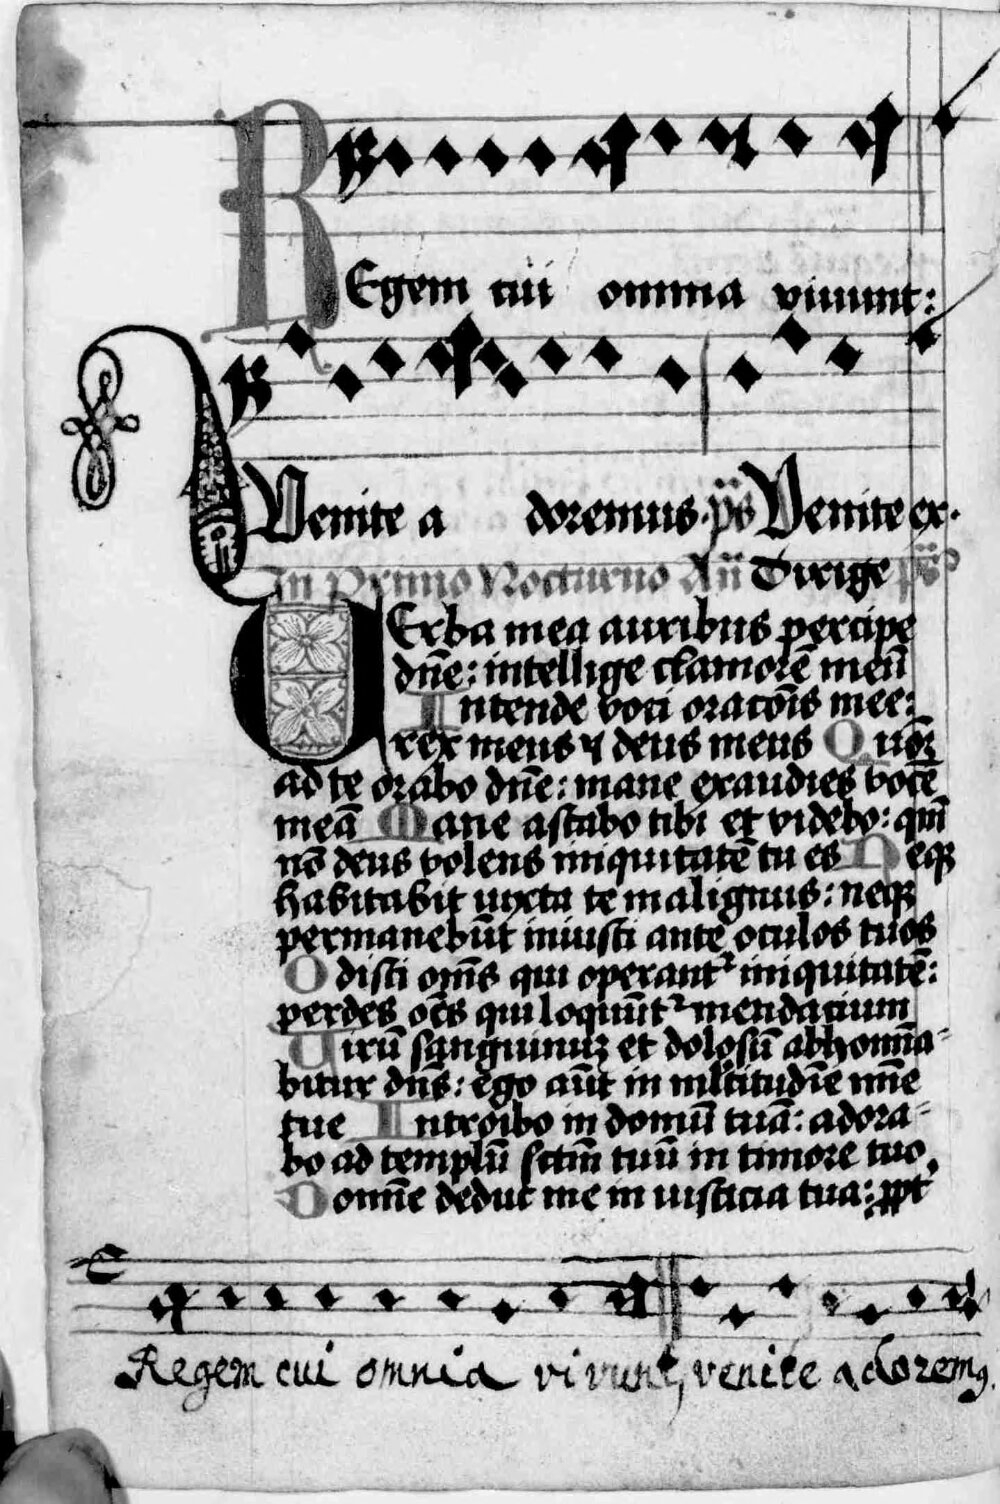 REgem cui omnia viuunt:
Venite a doremus. p̄s Venite ex.
In Primo Nocturno Añ Dirige ps̄
VErba mea auribus percipe
dñe: intellige clamorē meū
Intende voci oracōis mee:
rex meus ⁊ deus meus Quōꝝ
ad te orabo dñe: mane exaudies vocē
meā Mane astabo tibi et videbo: qm̄
nō deus volens iniquitatē tu es Neqꝫ
habitabit iuxta te malignus: neqꝫ
permanebūt iniusti ante oculos tuos
Odisti om̄s qui operant᷑ iniquitatē:
perdes oēs qui loquūt᷑ mendacium
Uirū sanguinuꝫ et dolosū abhomīa-
bitur dñs: ego aūt in ml̄titudīe mīe
tue Introibo in domū tuā: adora-
bo ad templū sctm̄ tuū in timore tuo.
Domīe deduc me in iusticia tua: ꝓpt
Regem cui omnia vivunt, venite adoremꝰ.